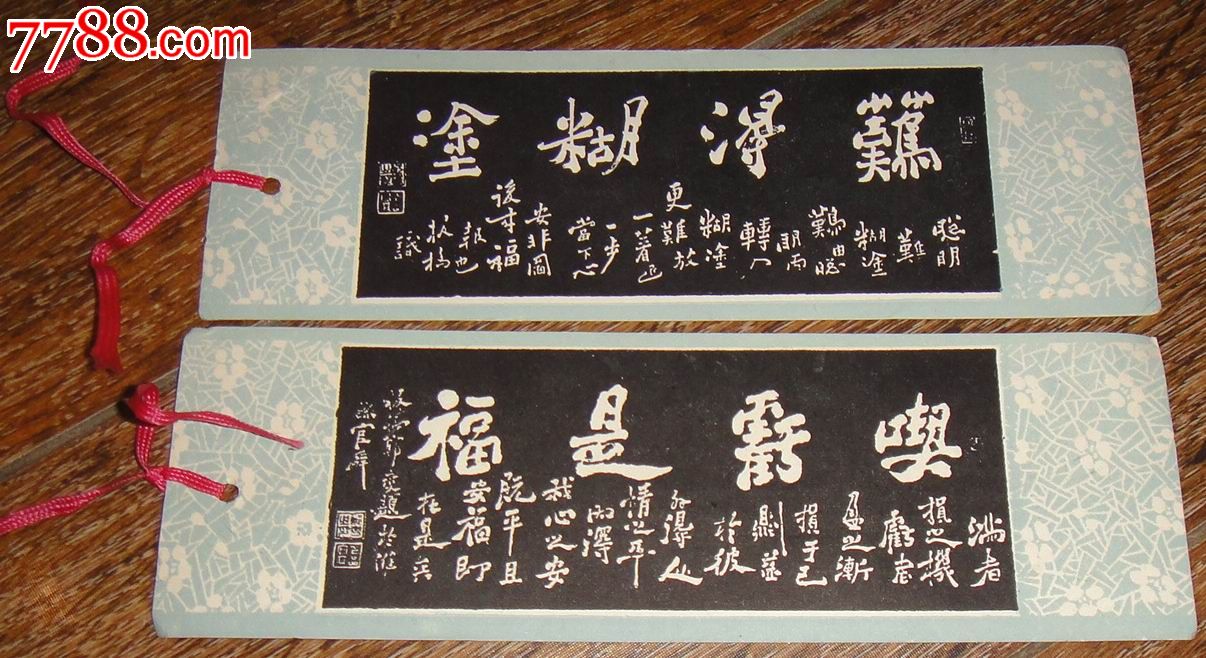 7788.com
難得糊塗
聰明
難
糊塗
難由聰
明而
轉入
糊塗
更難放
一著退
一步
當下心
安非圖
後來福
報也
板橋
識
喫虧是福
滿者
損之機
虧者
盈之漸
損于己
則益
於彼
外得人
情之平
內得
我心之安
既平且
安福即
在是矣
板橋鄭燮題於濰
縣官廨